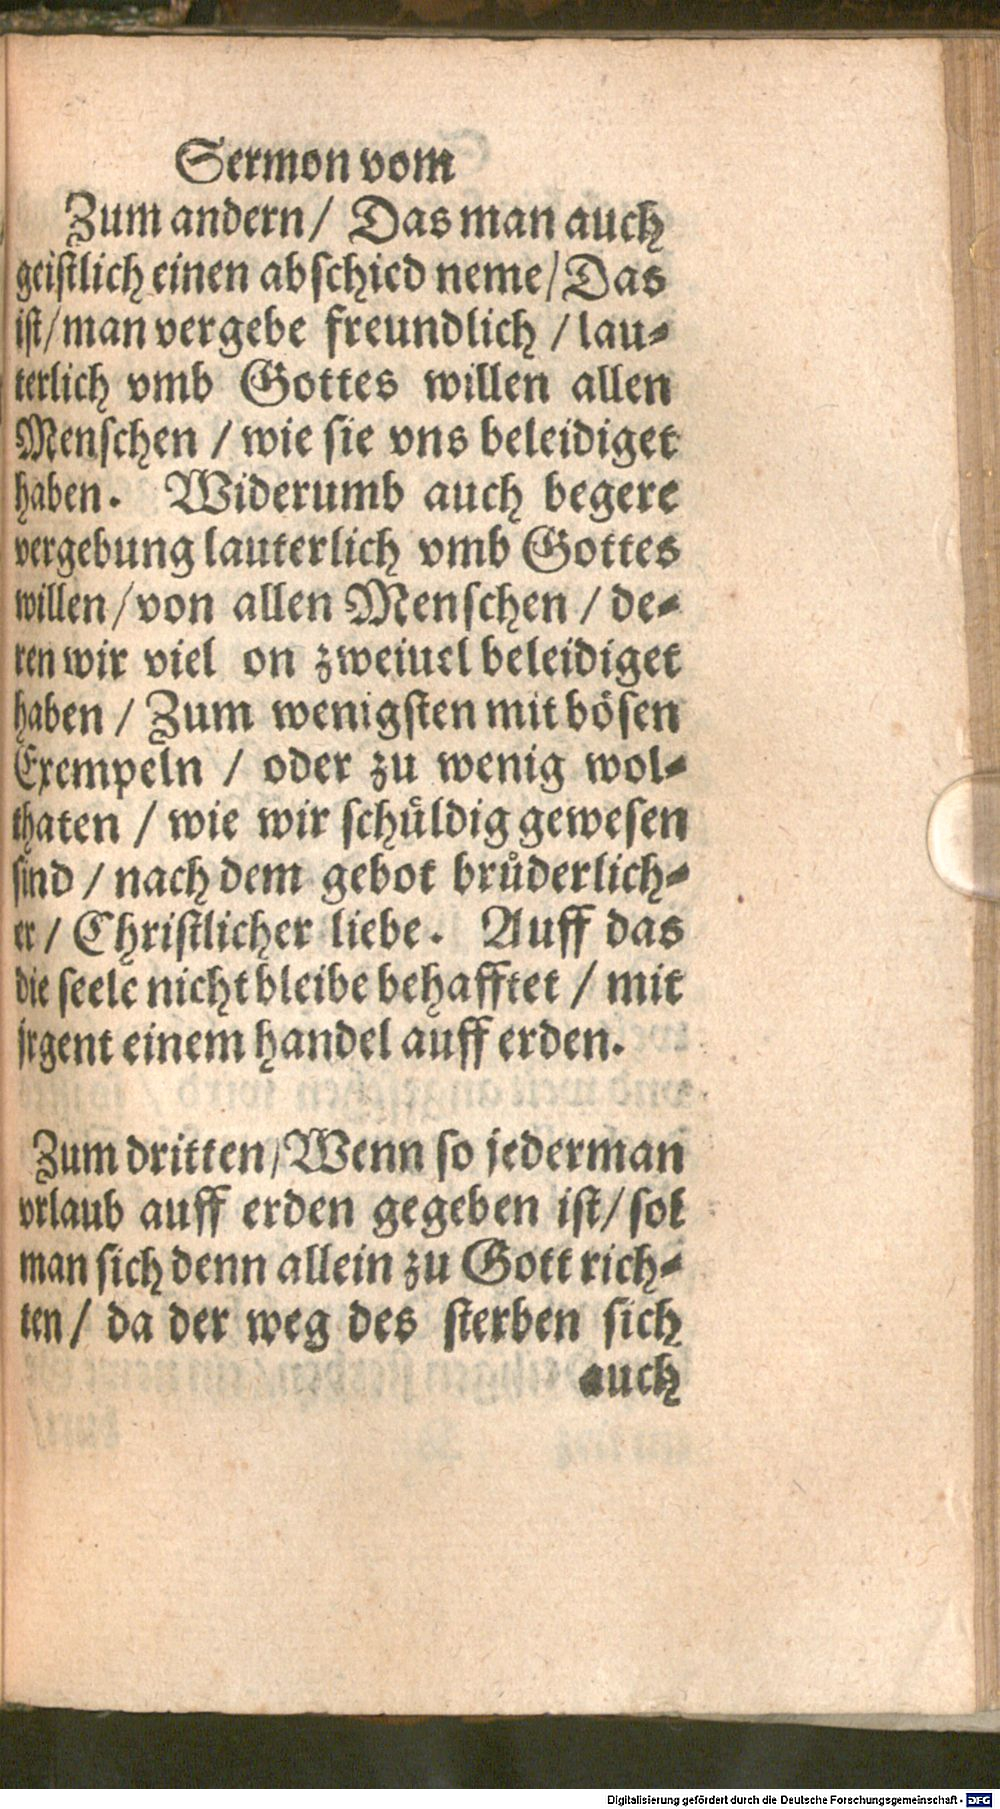 Sermon vom
Zum andern / Das man auch
geistlich einen abschied neme / Das
ist / man vergebe freundlich / lau-
terlich vmb Gottes willen allen
Menschen / wie sie vns beleidiget
haben. Widerumb auch begere
vergebung lauterlich vmb Gottes
willen / von allen Menschen / de-
ren wir viel on zweiuel beleidiget
haben / Zum wenigsten mit bösen
Exempeln / oder zu wenig wol-
thaten / wie wir schüldig gewesen
sind / nach dem gebot brůderlich-
er / Christlicher liebe. Auff das
die seele nicht bleibe behafftet / mit
jrgent einem handel auff erden.
Zum dritten / Wenn so jederman
vrlaub auff erden gegeben ist / sol
man sich denn allein zu Gott rich-
ten / da der weg des sterben sich
auch
Digitalisierung gefördert durch die Deutsche Forschungsgemeinschaft - DFG